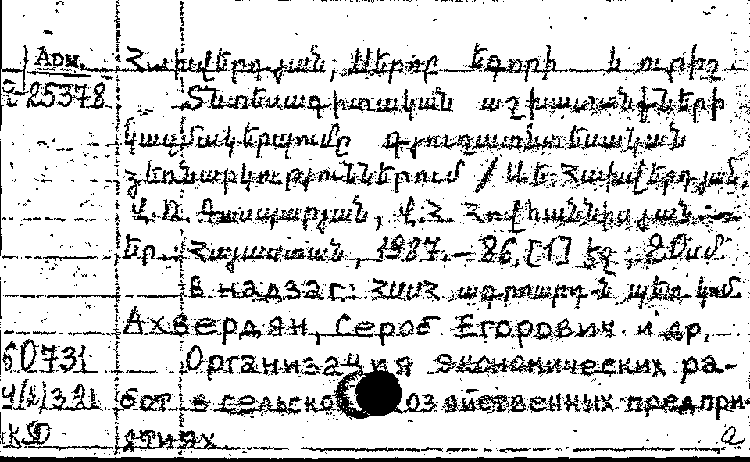 Арм. Հախվերդյան, Սերոբ Եգորի և ուրիշ
2 25378 Տնտեսագիտական աշխատանքների
կազմակերպումը գյուղատնտեսական
ձեռնարկություններում / Ս. Ե. Հախվերդյան,
Վ. Ռ. Գասպարյան, Վ. Հ. Հովհաննիսյան.—
Եր.: Հայաստան, 1987.— 86, [1] էջ ; 20սմ
В надзаг: ՀՍՍՀ ագրոարդ-ն պետ կոմ.
Ахвердян, Сероб Егорович и др.
60731 Организация экономических ра-
4(2)321 бот в сельскохозяйственных предпри-
КФ ятиях а